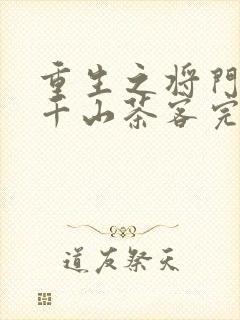 重生之将門
千山茶客完
道友祭天